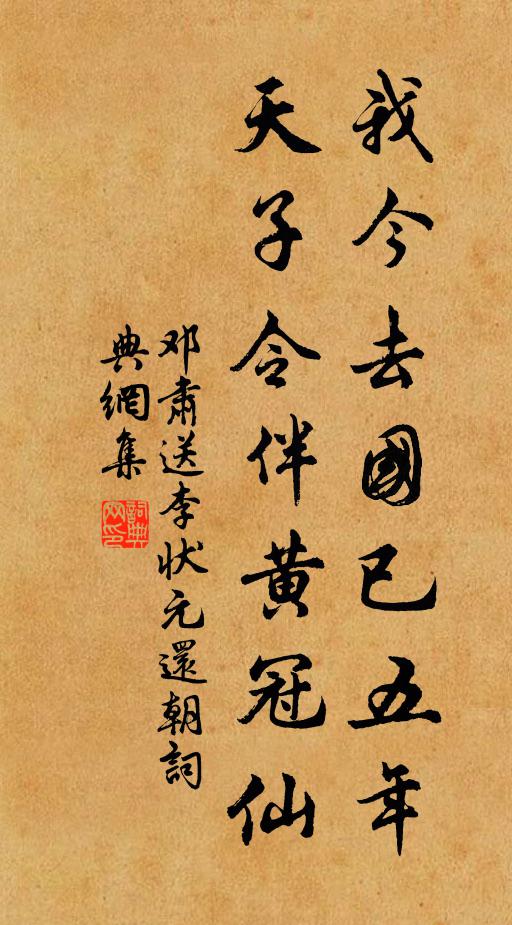 我今去國已五年
天子令伴黄冠仙
邓肅送李状元還朝詞
典網集
詞典网印